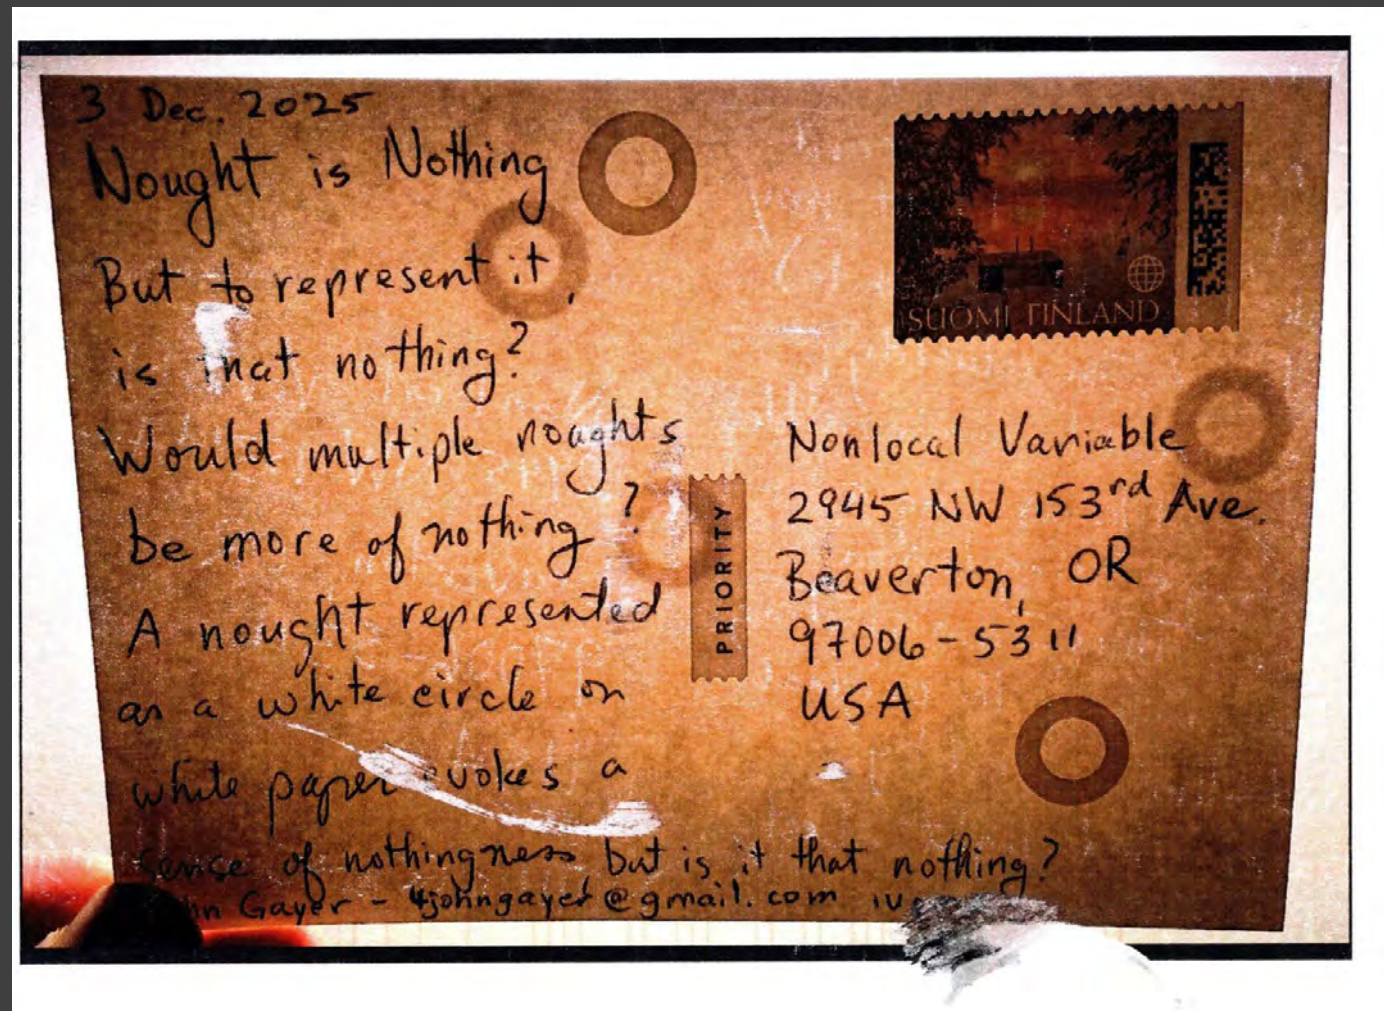 3 Dec. 2025
Nought is Nothing
But to represent it,
is that nothing?
Would multiple noughts
be more of nothing?
A nought represented
as a white circle on
white paper evokes a
sense of nothingness but is it that nothing?
John Gayer - 4johngayer@gmail.com
SUOMI FINLAND
PRIORITY
Nonlocal Variable
2945 NW 153rd Ave.
Beaverton, OR
97006-5311
USA